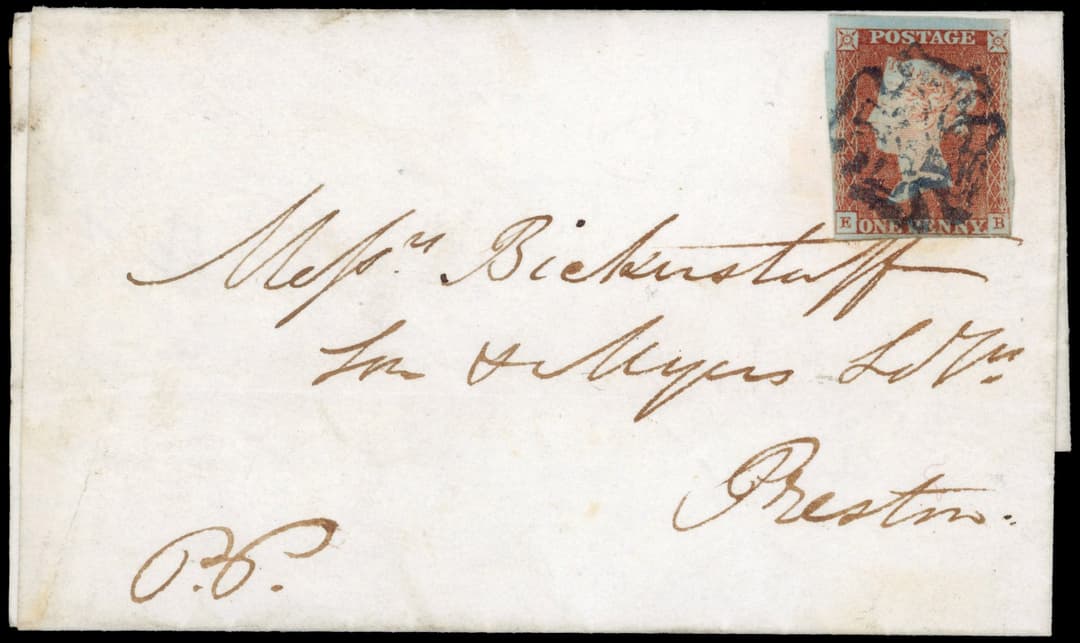 POSTAGE
E ONE PENNY B
Messrs Bickerstaff
Son & Myers
Preston.
P.P.